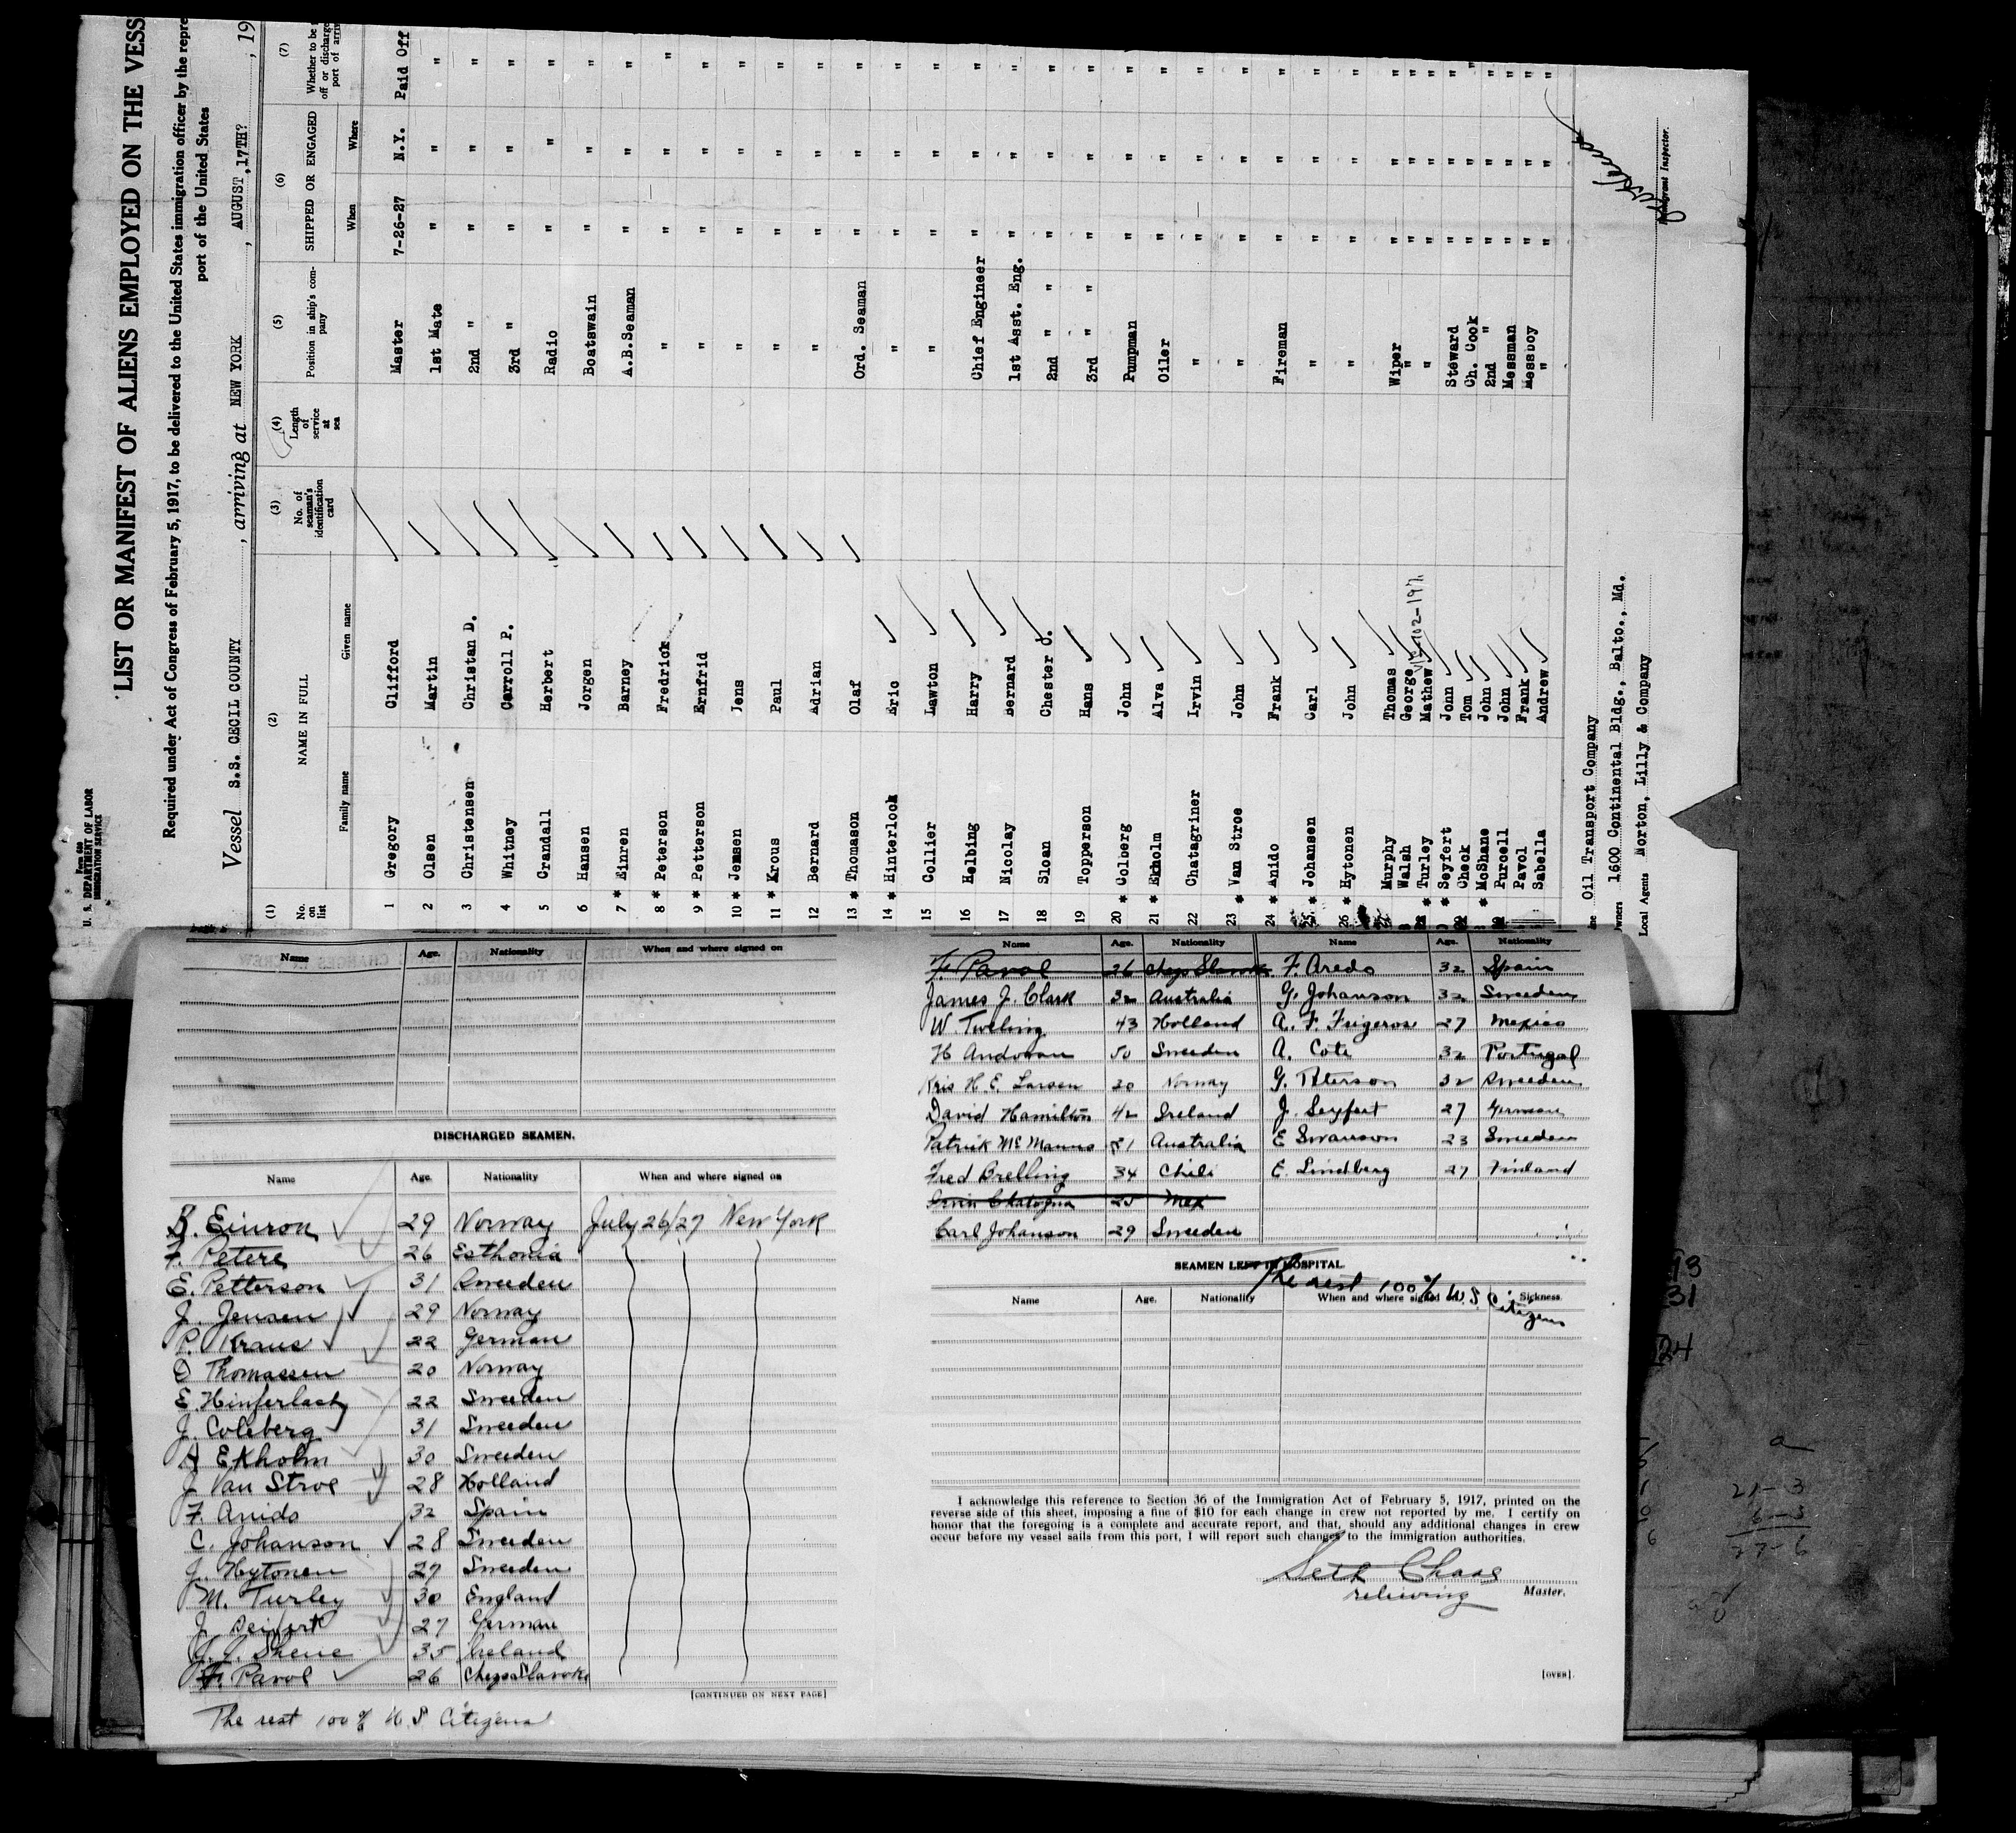 Form 680
U. S. DEPARTMENT OF LABOR
IMMIGRATION SERVICE
LIST OR MANIFEST OF ALIENS EMPLOYED ON THE VESS
Required under Act of Congress of February 5, 1917, to be delivered to the United States immigration officer by the repre
port of the United States
Vessel S.S. CECIL COUNTY, arriving at NEW YORK, AUGUST, 17TH?, 19
(1) (2) (3) (4) (5) (6) (7)
No. on list NAME IN FULL No. of seaman's identification card Length of service at sea Position in ship's company SHIPPED OR ENGAGED Whether to be off or discharge port of arri
Family name Given name When Where
1 Gregory Clifford Master 7-26-27 N.Y. Paid Off
2 Olsen Martin 1st Mate " " "
3 Christensen Christan D. 2nd " " " "
4 Whitney Carroll P. 3rd " " " "
5 Crandall Herbert Radio " " "
6 Hansen Jorgen Boatswain " " "
7 * Einren Barney A.B.Seaman " " "
8 * Peterson Fredrick " " " "
9 * Petterson Ernfrid " " " "
10 * Jensen Jens " " " "
11 * Krous Paul " " " "
12 Bernard Adrian " " " "
13 * Thomason Olaf Ord. Seaman " " "
14 * Hinterlock Eric " " " "
15 Collier Lawton " " " "
16 Helbing Harry Chief Engineer " " "
17 Nicolay Bernard 1st Asst. Eng. " " "
18 Sloan Chester J. 2nd " " " " "
19 Topperson Hans 3rd " " " " "
20 * Colberg John Pumpman " " "
21 * Ekholm Alva Oiler " " "
22 Chatagriner Irvin " " " "
23 * Van Stroe John " " " "
24 * Anido Frank Fireman " " "
25 * Johansen Carl " " " "
26 * Hytonen John " " " "
Murphy Thomas Wiper " " "
Walsh George " " " "
* Turley Mathew " " " "
* Seyfert John Steward " " "
Check Tom Ch. Cook " " "
* McShane John 2nd " " " "
Purcell John Messman " " "
Pavol Frank Messboy " " "
Sabella Andrew " " " "
Oil Transport Company
Owners 1600 Continental Bldg., Balto., Md.
Local Agents Norton, Lilly & Company
Immigrant Inspector.
Name Age. Nationality When and where signed on
DISCHARGED SEAMEN.
Name Age. Nationality When and where signed on
B. Einron 29 Norway July 26/27 New York
F. Peters 26 Esthonia
E. Petterson 31 Sweeden
J. Jensen 29 Norway
P. Kraus 22 German
O Thomassen 20 Norway
E. Hinferlach 22 Sweeden
J. Coleberg 31 Sweeden
A Ekholm 30 Sweeden
J Van Stroe 28 Holland
F. Anido 32 Spain
C. Johanson 28 Sweeden
J. Hytonen 27 Sweeden
M. Turley 30 England
J. Seifert 27 German
J. J. Shene 35 Ireland
F. Pavol 26 Chezo Slavoke
[CONTINUED ON NEXT PAGE]
The rest 100% U.S Citizens
Name Age. Nationality Name Age. Nationality
F. Pavol 26 Chezo Slavoke F. Aredo 32 Spain
James J. Clark 32 Australia G. Johanson 32 Sweeden
W. Tweling 43 Holland A. F. Frigerou 27 Mexico
H Andowan 50 Sweeden A. Cote 32 Portugal
Kris H. E. Larsen 30 Norway G. Peterson 32 Sweeden
David Hamilton 42 Ireland J. Seyfert 27 German
Patrick McManus 21 Australia E Swanson 23 Sweeden
Fred Brelling 34 Chili E. Lindberg 27 Finland
Irvin Chatogna 25 Mex
Carl Johanson 29 Sweeden
SEAMEN LEFT IN HOSPITAL.
The rest 100% U.S Citizens
Name Age. Nationality When and where signed on. Sickness.
I acknowledge this reference to Section 36 of the Immigration Act of February 5, 1917, printed on the
reverse side of this sheet, imposing a fine of $10 for each change in crew not reported by me. I certify on
honor that the foregoing is a complete and accurate report, and that, should any additional changes in crew
occur before my vessel sails from this port, I will report such changes to the immigration authorities.
Seth Chase
relieving Master.
[OVER].
31
24
21-3
6-3
27-6